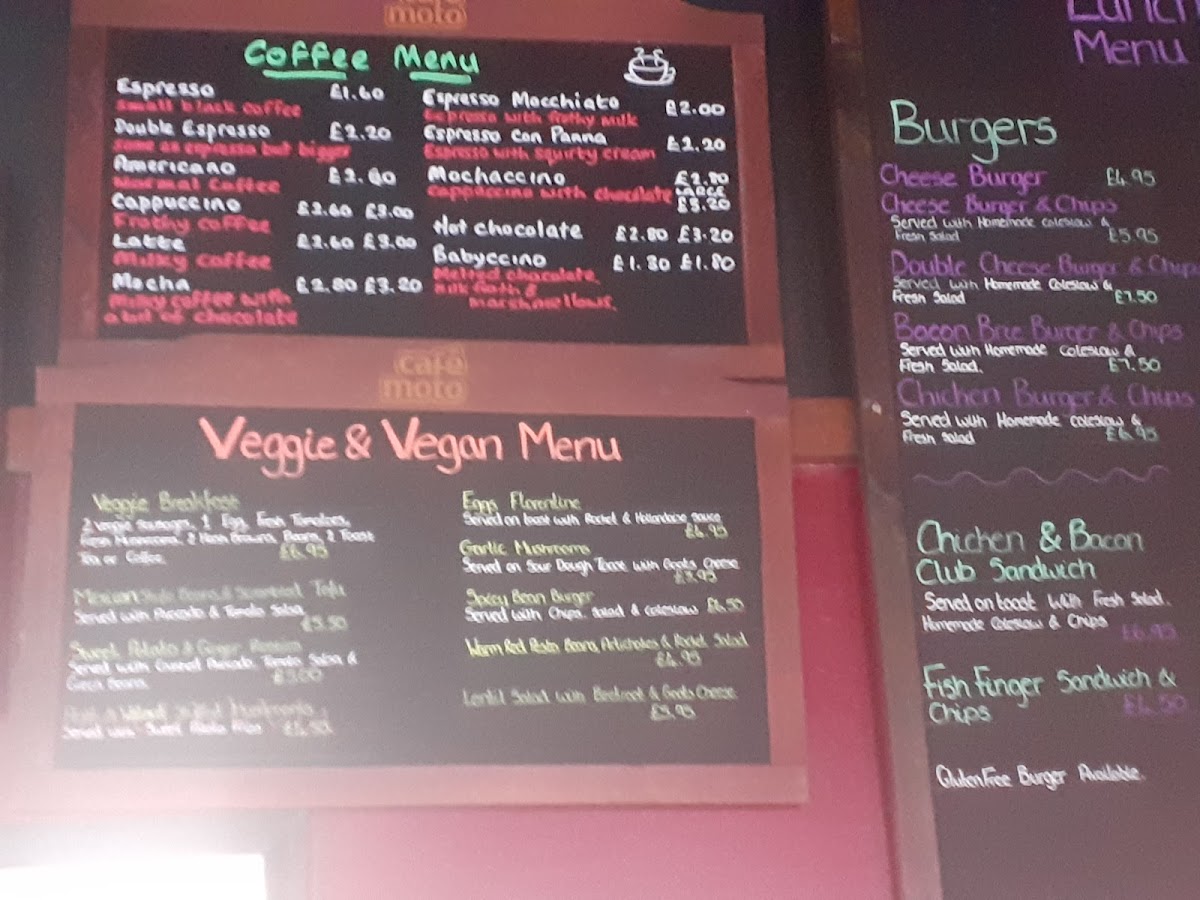 moto
Coffee Menu
Espresso £1.60
Small black coffee
Double Espresso £2.20
Same as espresso but bigger
Americano
Normal Coffee
Cappuccino £2.60 £3.00
Frothy coffee
Latte £2.60 £3.00
Milky coffee
Mocha £2.80 £3.20
Milky coffee with
a bit of chocolate
Espresso Macchiato £2.00
Espresso with frothy milk
Espresso Con Panna £2.20
Espresso with squirty cream
Mochaccino £2.80
Cappuccino with chocolate LARGE
£3.20
Hot chocolate £2.80 £3.20
Babyccino £1.30 £1.80
Melted chocolate,
milk froth &
marshmellows.
café
moto
Veggie & Vegan Menu
Veggie Breakfast
2 Veggie Sausages, 1 Egg, Fresh Tomatoes,
Fresh Mushrooms, 2 Hash Browns, Beans, 2 Toast
Tea or Coffee. £6.95
Mexican Style Beans & Tofu
Served with Avocado & Tomato Salsa
£5.50
Sweet Potato & Ginger
Served with Avocado, Tomato Salsa &
Beans.
Served with Sweet Potato Fries £6.50
Eggs Florentine
Served on toast with Rocket & Hollandaise Sauce
£6.95
Garlic Mushrooms
Served on Sour Dough Toast with Goats Cheese
£5.95
Spicy Bean Burger
Served with Chips, Salad & Coleslaw £6.50
Warm Red Pesto Beans, Artichokes & Rocket Salad
£6.95
Lentil Salad with Beetroot & Goats Cheese
£5.95
Lunch
Menu
Burgers
Cheese Burger £4.95
Cheese Burger & Chips
Served with Homemade Coleslaw &
Fresh Salad £5.95
Double Cheese Burger & Chips
Served with Homemade Coleslaw &
Fresh Salad £7.50
Bacon Brie Burger & Chips
Served with Homemade Coleslaw &
Fresh Salad. £7.50
Chicken Burger & Chips
Served with Homemade Coleslaw &
Fresh Salad £6.95
Chicken & Bacon
Club Sandwich
Served on toast with Fresh Salad.
Homemade Coleslaw & Chips £6.95
Fish Finger Sandwich &
Chips £6.50
Gluten Free Burger Available.